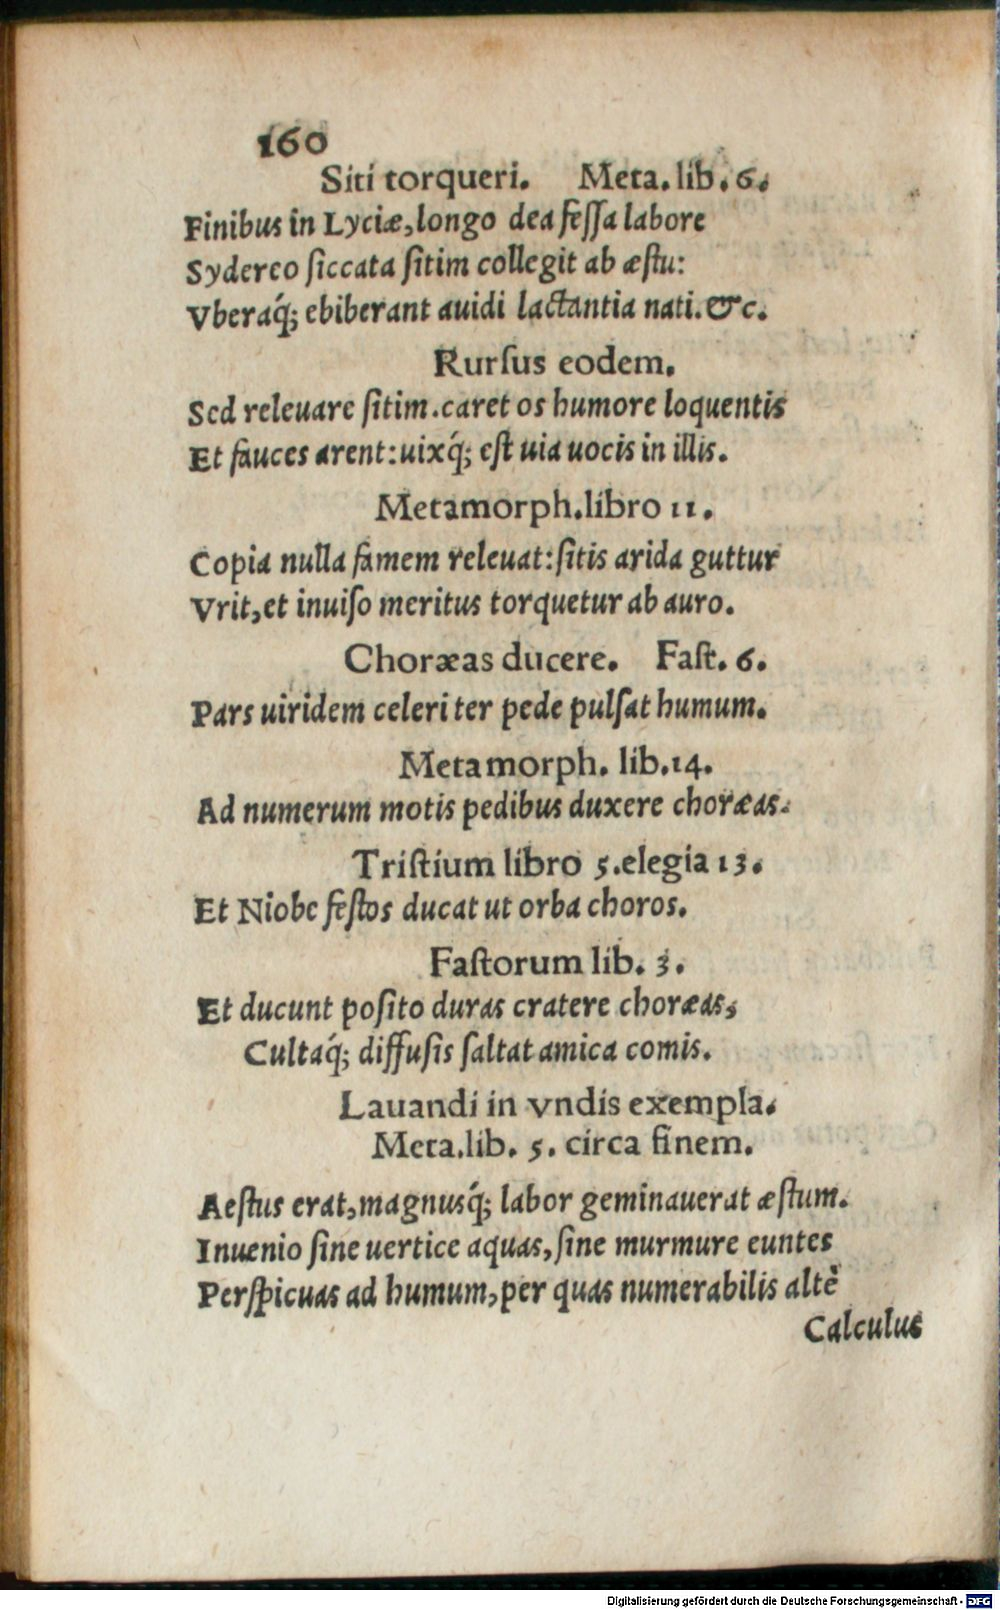 160
Siti torqueri. Meta. lib. 6.
Finibus in Lyciæ, longo dea feſſa labore
Sydereo ſiccata ſitim collegit ab æſtu:
Vberaq́; ebiberant auidi lactantia nati. &c.
Rurſus eodem.
Sed releuare ſitim. caret os humore loquentis
Et fauces arent: uixq́; eſt uia uocis in illis.
Metamorph. libro 11.
Copia nulla famem releuat: ſitis arida guttur
Vrit, et inuiſo meritus torquetur ab auro.
Choræas ducere. Faſt. 6.
Pars uiridem celeri ter pede pulſat humum.
Metamorph. lib. 14.
Ad numerum motis pedibus duxere choræas.
Triſtium libro 5. elegia 13.
Et Niobe feſtos ducat ut orba choros.
Faſtorum lib. 3.
Et ducunt poſito duras cratere choræas,
Cultaq́; diffuſis ſaltat amica comis.
Lauandi in vndis exempla.
Meta. lib. 5. circa finem.
Aeſtus erat, magnusq́; labor geminauerat æſtum.
Inuenio ſine uertice aquas, ſine murmure euntes
Perſpicuas ad humum, per quas numerabilis altè
Calculus
Digitalisierung gefördert durch die Deutsche Forschungsgemeinschaft - DFG